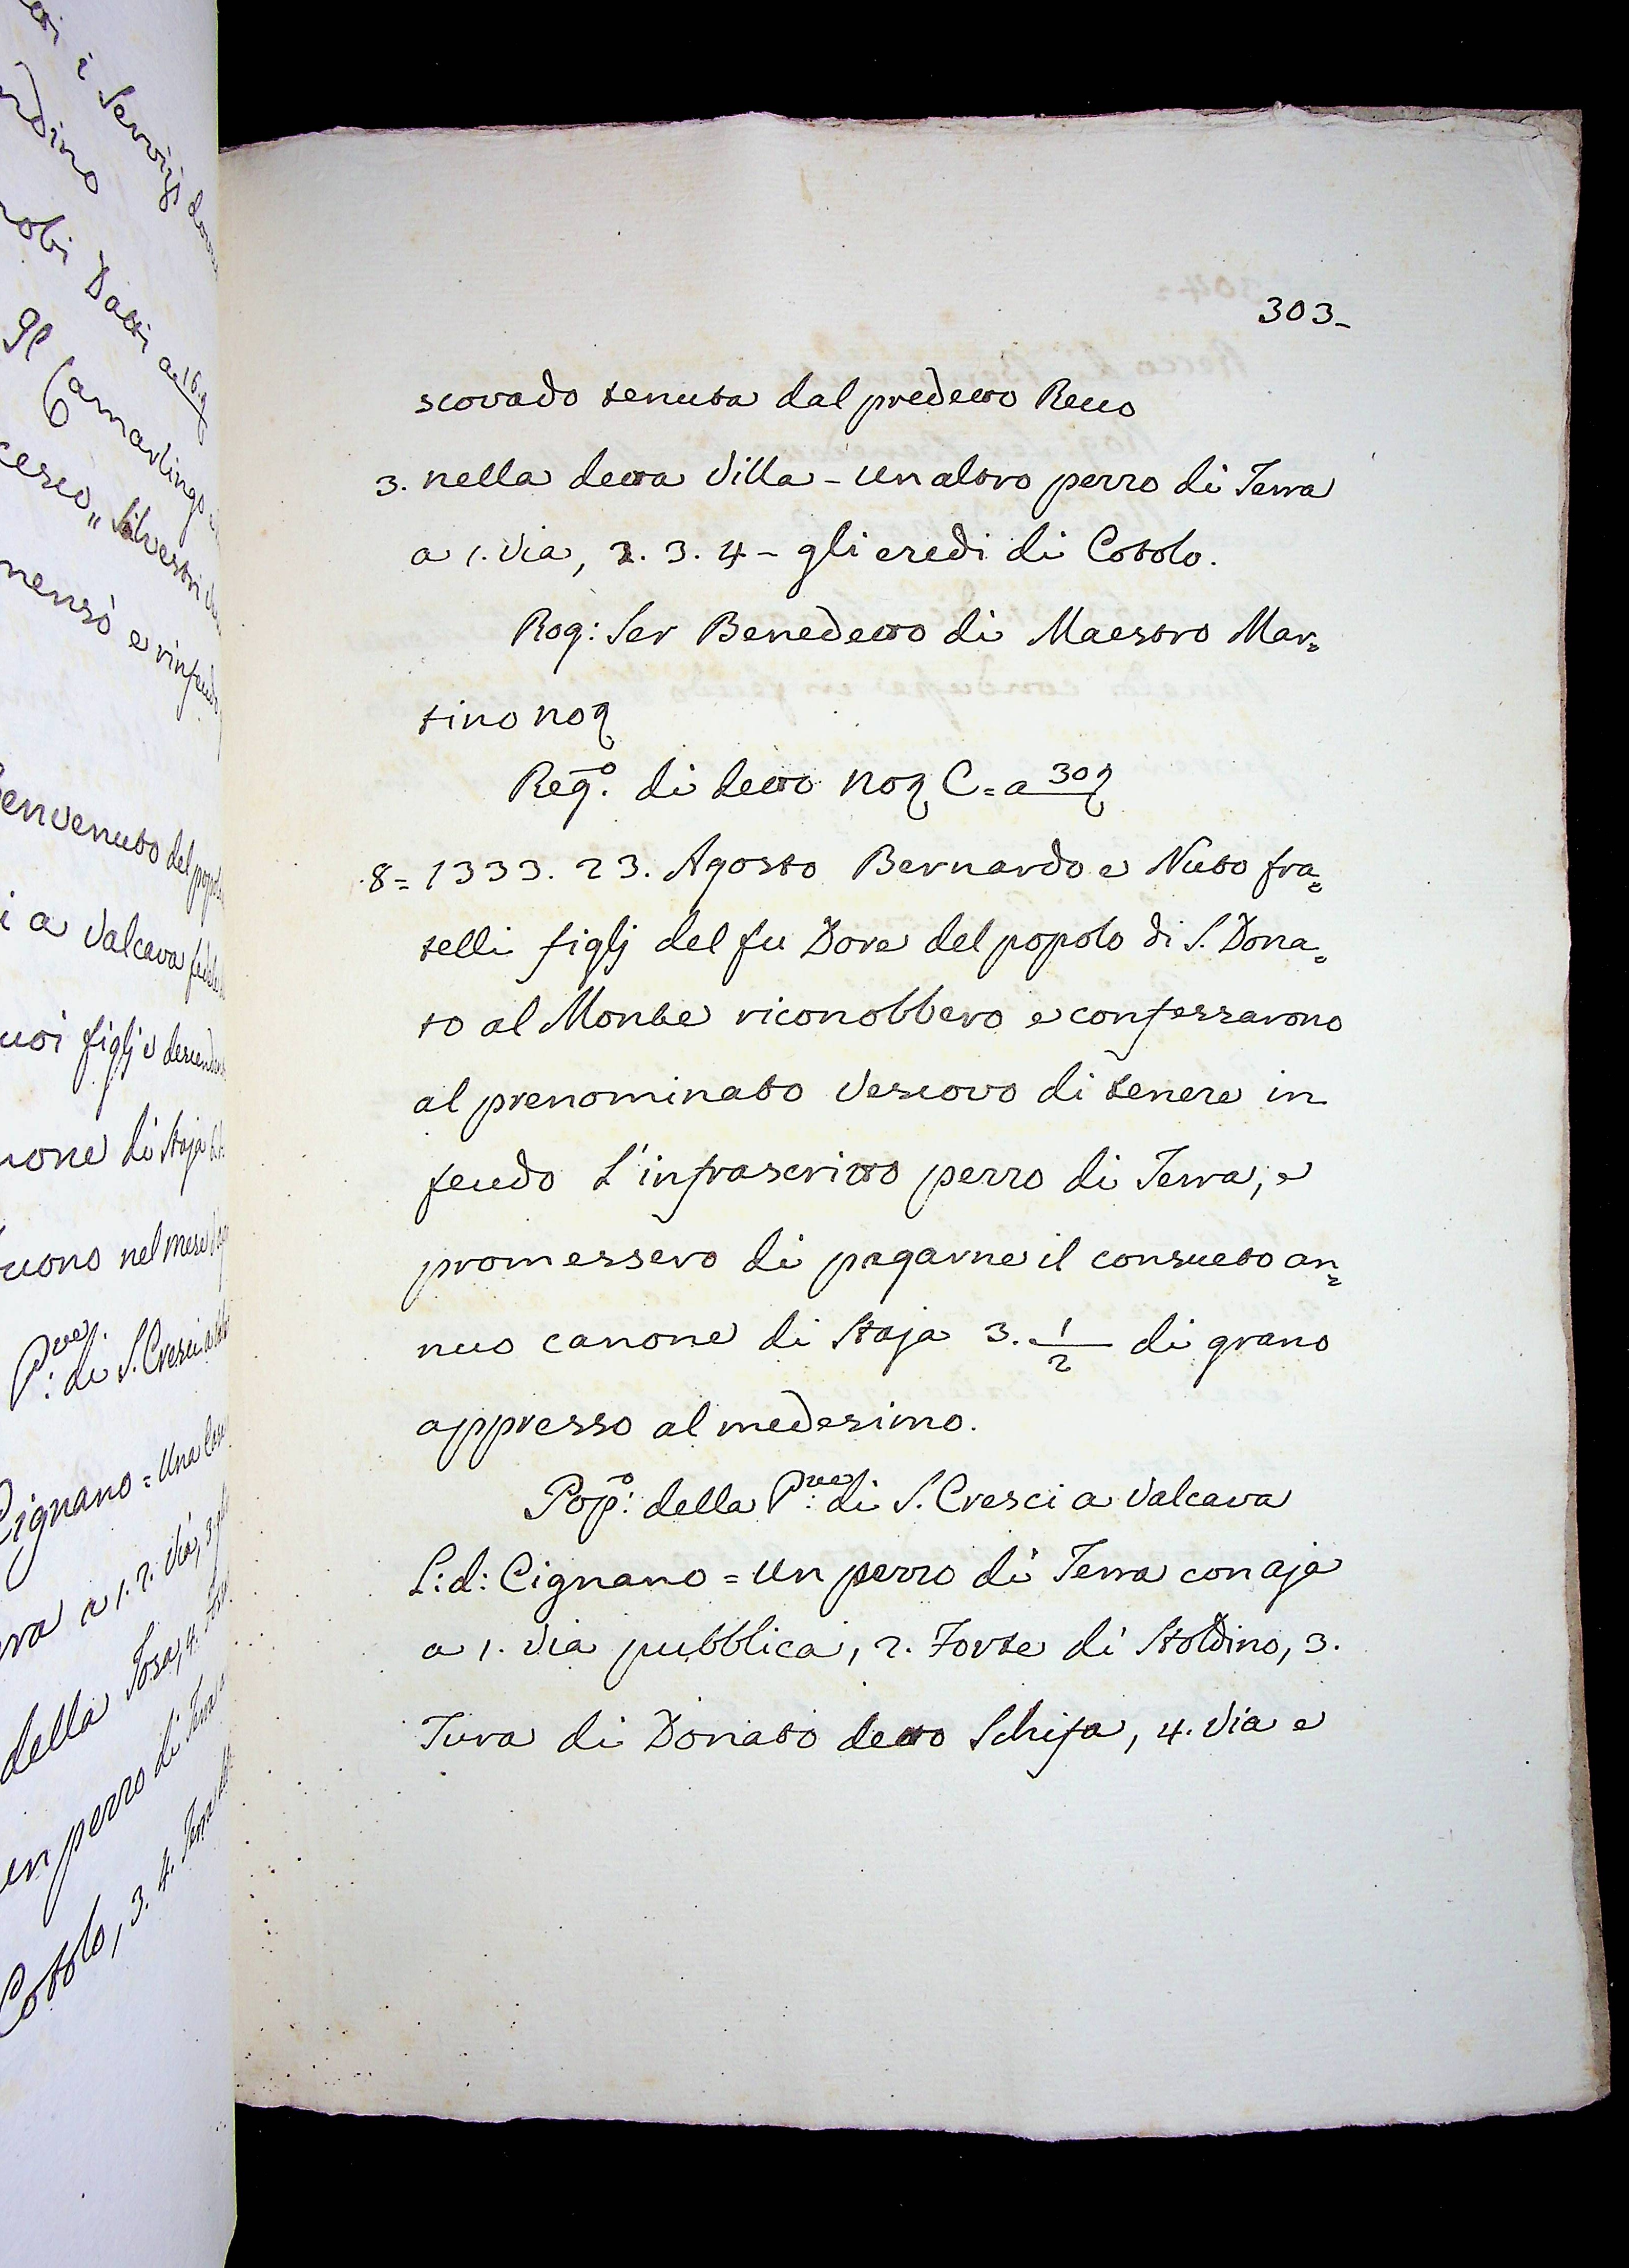 303-
scovado tenuta dal predetto Recco
3. nella detta Villa - Un altro pezzo di Terra
a 1. Via, 2. 3. 4 - gli eredi di Cotolo.
Rog: Ser Benedetto di Maestro Mar=
tino noq
Reg.o di detto Noq C=a 30q
8= 1333. 23. Agosto Bernardo e Nuto fra=
telli figlj del fu Dore del popolo di S. Dona=
to al Monte riconobbero e confessarono
al prenominato Vescovo di tenere in
feudo l'infrascritto pezzo di Terra, e
promessero di pagarne il consueto an=
nuo canone di Staja 3. 1/2 di grano
appresso al medesimo.
Pop:o della P:ve di S. Cresci a Valcava
L: d: Cignano = Un pezzo di Terra con aja
a 1. Via pubblica, 2. Forte di Stoldino, 3.
Tura di Donato detto Schifa, 4. Via e
i Servizj
Datti a 16.q
Camarlingo
Silvestri
e
Benvenuto del popolo
i a Valcava
figlj e
di Staja
nel mese
P:ve di S. Cresci a
Cignano = Una Casa
a 1. 2. Via, 3
della Tosa, 4.
un pezzo di Terra a
Cotolo, 3. 4. Terra